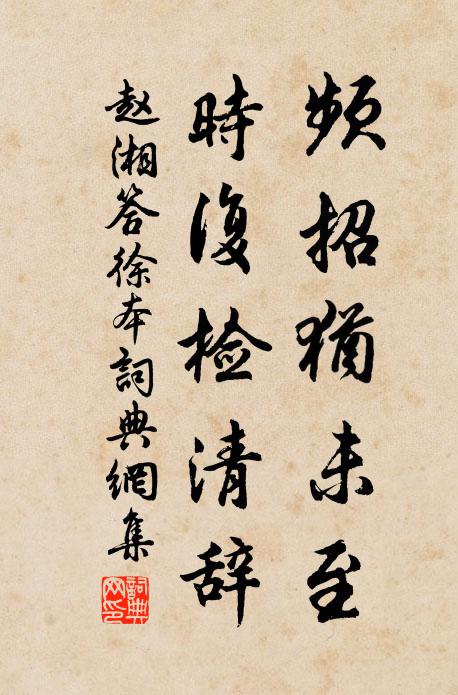 频招犹未至
時復检清辞
赵湘答徐本詞典網集
詞典网印